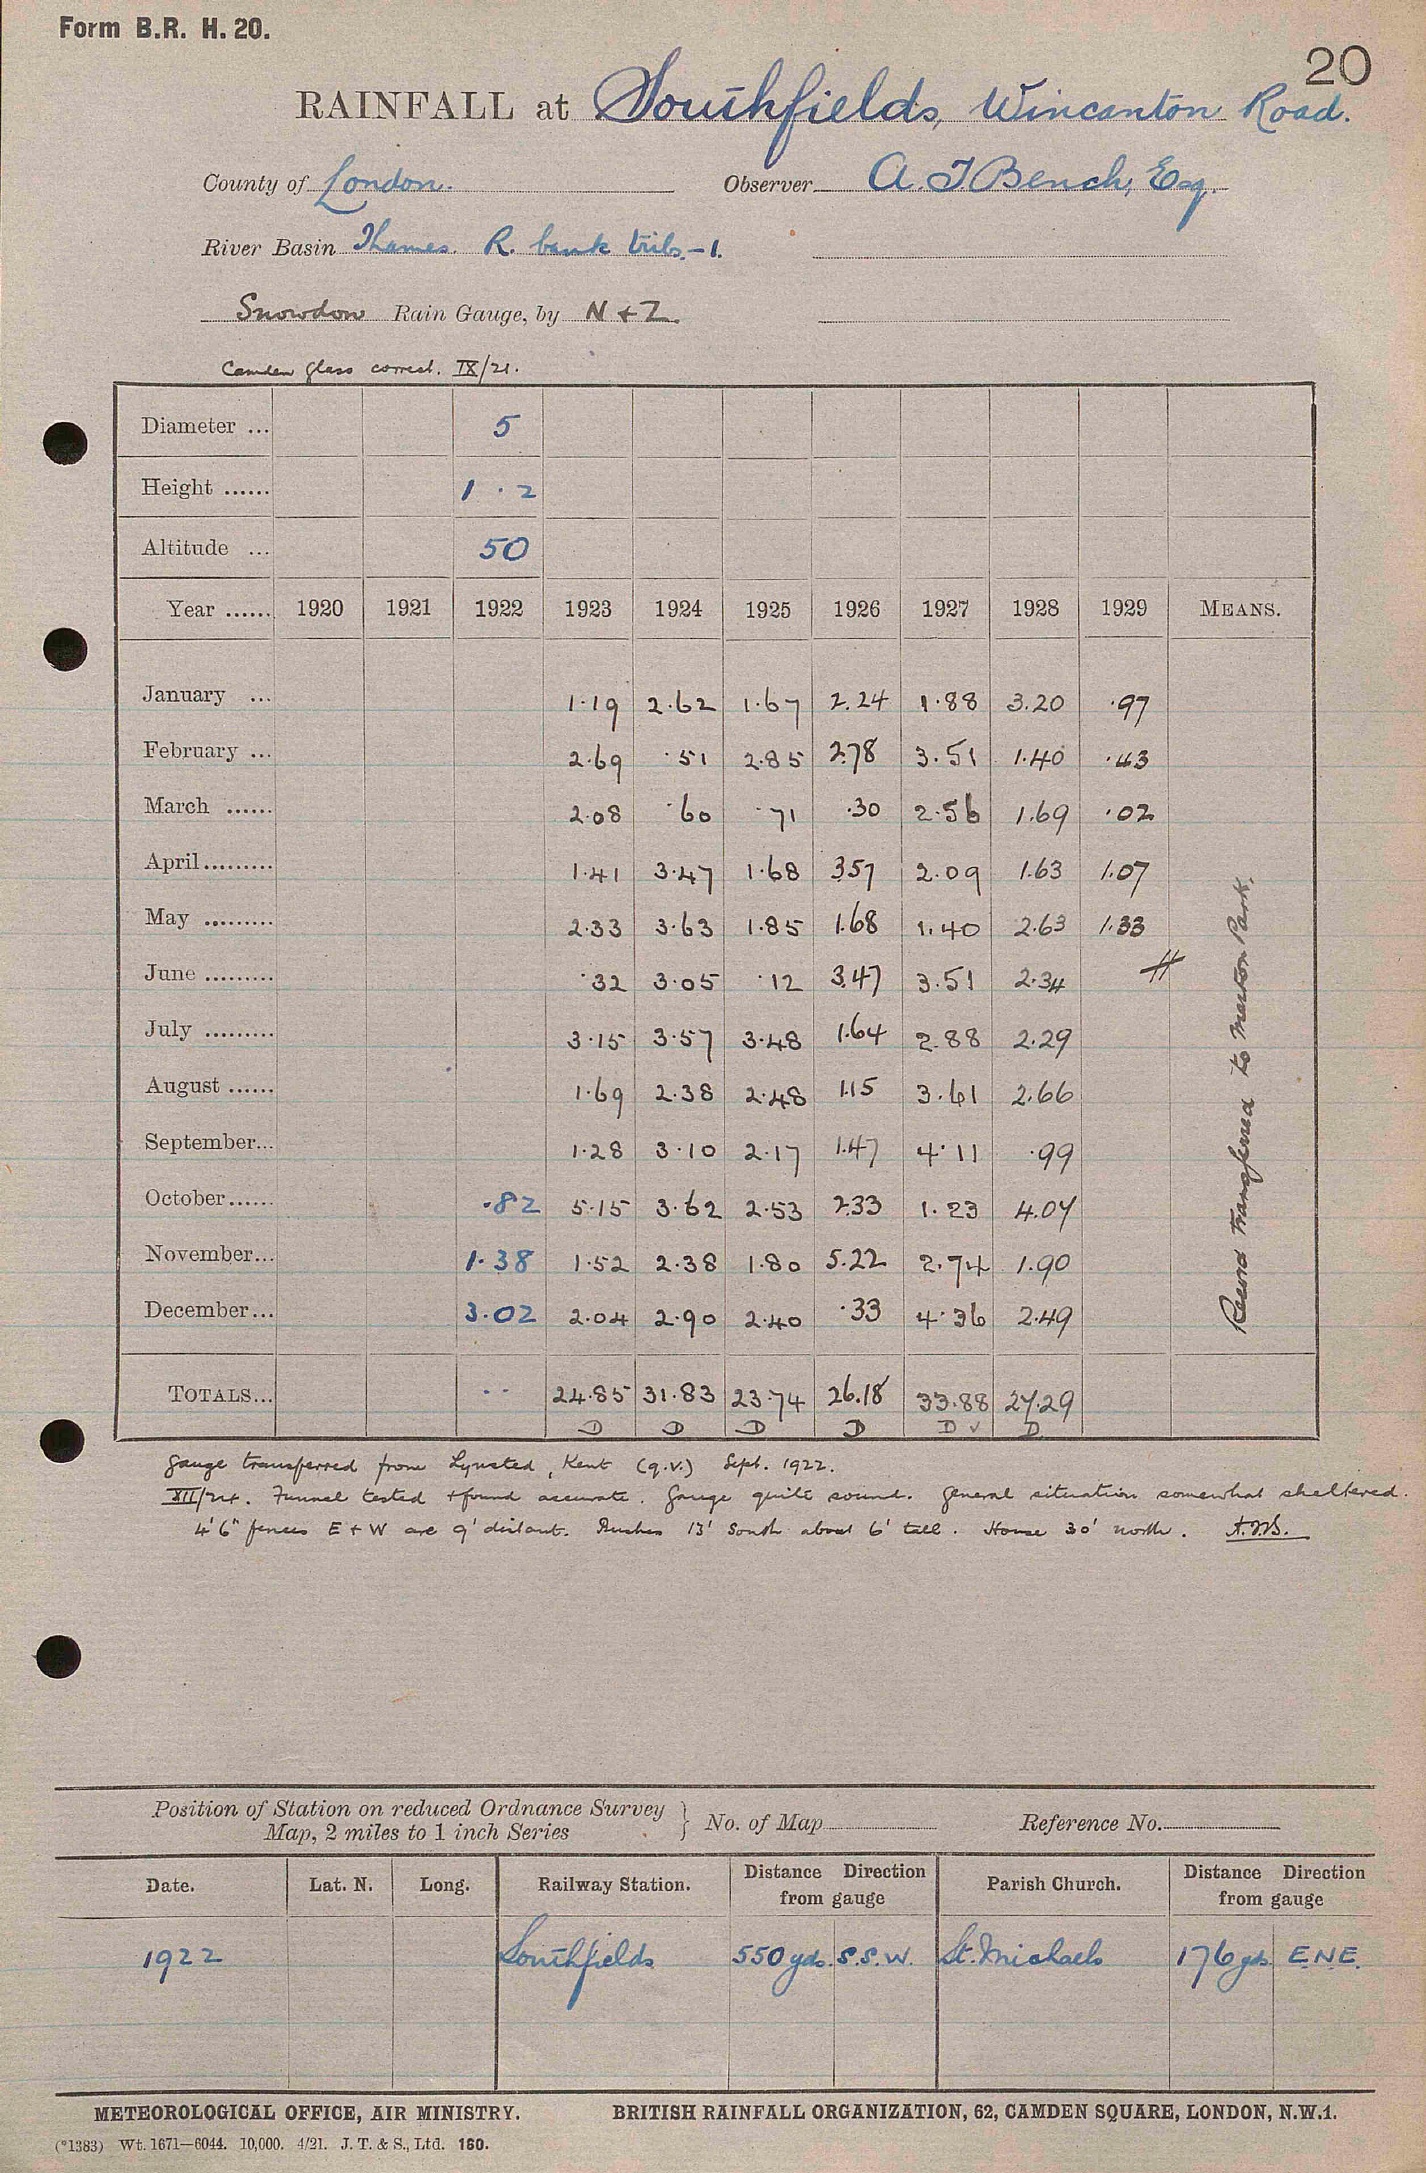 Form B.R. H. 20.
20
RAINFALL at Southfields, Wincanton Road.
County of London. Observer A. J Bench, Esq.
River Basin Thames. R. bank tribs.-1.
Snowdon Rain Gauge, by N + Z.
Camden glass correct. IX/21.
Diameter ... 5
Height ...... 1 . 2
Altitude ... 50
Year ...... 1920 1921 1922 1923 1924 1925 1926 1927 1928 1929 MEANS.
January ... 1.19 2.62 1.67 2.24 1.88 3.20 .97
February ... 2.69 .51 2.85 2.78 3.51 1.40 .43
March ...... 2.08 .60 .71 .30 2.56 1.69 .02
April......... 1.41 3.47 1.68 3.57 2.09 1.63 1.07
May ......... 2.33 3.63 1.85 1.68 1.40 2.63 1.33
June ......... .32 3.05 .12 3.47 3.51 2.34
July ......... 3.15 3.57 3.48 1.64 2.88 2.29
August ...... 1.69 2.38 2.48 1.15 3.61 2.66
September... 1.28 3.10 2.17 1.47 4.11 .99
October...... .82 5.15 3.62 2.53 2.33 1.23 4.07
November... 1.38 1.52 2.38 1.80 5.22 2.74 1.90
December... 3.02 2.04 2.90 2.40 .33 4.36 2.49
Record transferred to Merton Park.
TOTALS... .. 24.85 31.83 23.74 26.18 33.88 27.29
D D D D D ✓ D
Gauge transferred from Lynsted, Kent (q.v.) Sept. 1922.
XII/24. Funnel tested + found accurate. Gauge quite sound. General situation somewhat sheltered.
4'6" fences E + W are 9' distant. Bushes 13' South about 6' tall. House 30' north.
Position of Station on reduced Ordnance Survey
Map, 2 miles to 1 inch Series } No. of Map Reference No.
Date. Lat. N. Long. Railway Station. Distance Direction from gauge Parish Church. Distance Direction from gauge
1922 Southfields 550 yds. S.S.W. St. Michaels 176 yds E.N.E.
METEOROLOGICAL OFFICE, AIR MINISTRY. BRITISH RAINFALL ORGANIZATION, 62, CAMDEN SQUARE, LONDON, N.W.1.
(*1383) Wt. 1671—6044. 10,000. 4/21. J. T. & S., Ltd. 160.